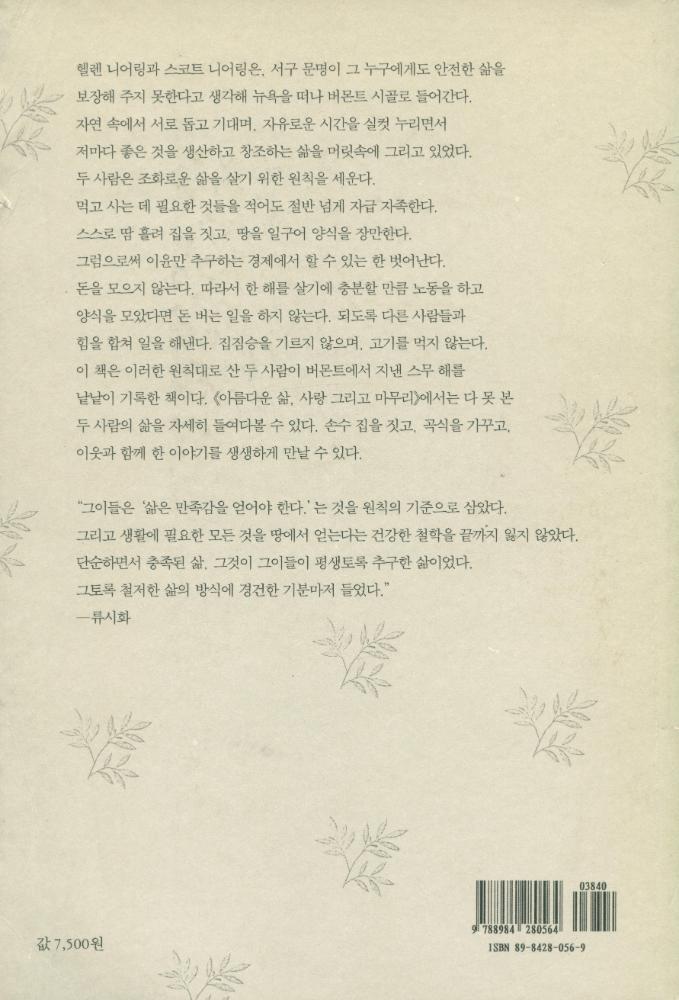 헬렌 니어링과 스코트 니어링은, 서구 문명이 그 누구에게도 안전한 삶을
보장해 주지 못한다고 생각해 뉴욕을 떠나 버몬트 시골로 들어간다.
자연 속에서 서로 돕고 기대며, 자유로운 시간을 실컷 누리면서
저마다 좋은 것을 생산하고 창조하는 삶을 머릿속에 그리고 있었다.
두 사람은 조화로운 삶을 살기 위한 원칙을 세운다.
먹고 사는 데 필요한 것들을 적어도 절반 넘게 자급 자족한다.
스스로 땀 흘려 집을 짓고, 땅을 일구어 양식을 장만한다.
그럼으로써 이윤만 추구하는 경제에서 할 수 있는 한 벗어난다.
돈을 모으지 않는다. 따라서 한 해를 살기에 충분할 만큼 노동을 하고
양식을 모았다면 돈 버는 일을 하지 않는다. 되도록 다른 사람들과
힘을 합쳐 일을 해낸다. 집짐승을 기르지 않으며, 고기를 먹지 않는다.
이 책은 이러한 원칙대로 산 두 사람이 버몬트에서 지낸 스무 해를
낱낱이 기록한 책이다. 《아름다운 삶, 사랑 그리고 마무리》에서는 다 못 본
두 사람의 삶을 자세히 들여다볼 수 있다. 손수 집을 짓고, 곡식을 가꾸고,
이웃과 함께 한 이야기를 생생하게 만날 수 있다.
“그이들은 ‘삶은 만족감을 얻어야 한다.’는 것을 원칙의 기준으로 삼았다.
그리고 생활에 필요한 모든 것을 땅에서 얻는다는 건강한 철학을 끝까지 잃지 않았다.
단순하면서 충족된 삶, 그것이 그이들이 평생토록 추구한 삶이었다.
그토록 철저한 삶의 방식에 경건한 기분마저 들었다.”
―류시화
03840
9 788984 280564
값 7,500원
ISBN 89-8428-056-9